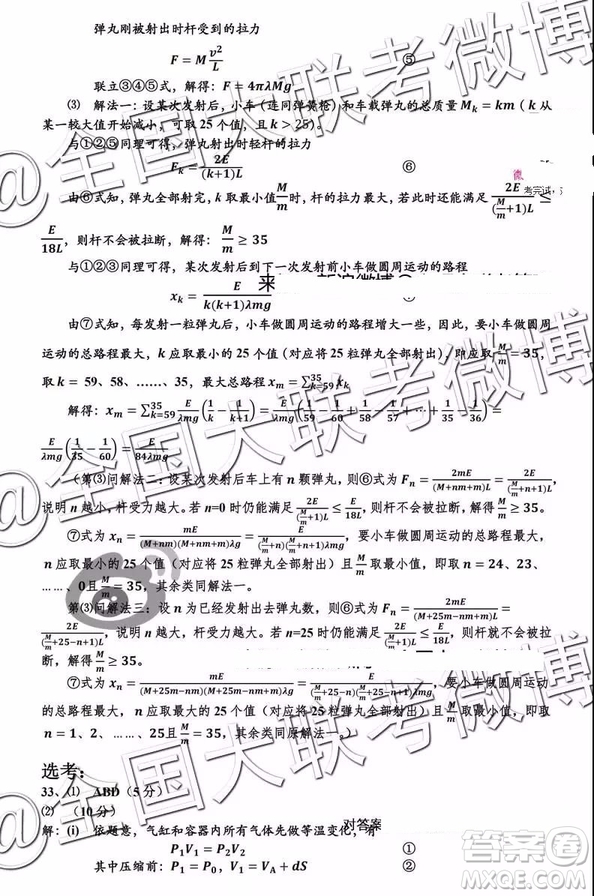 弹丸刚被射出时杆受到的拉力
F = M v²/L ⑤
联立③④⑤式，解得：F = 4πλMg
⑶ 解法一：设某次发射后，小车（连同弹簧枪）和车载弹丸的总质量 M_k = km（k 从
某一较大值开始减小，可取 25 个值，且 k > 25）。
与①②⑤同理可得，弹丸射出时轻杆的拉力
E_k = 2E/((k+1)L) ⑥
由⑥式知，弹丸全部射完，k 取最小值 M/m 时，杆的拉力最大，若此时还能满足 2E/((M/m+1)L) ≤
E/18L，则杆不会被拉断，解得：M/m ≥ 35
与①②③同理可得，某次发射后到下一次发射前小车做圆周运动的路程
x_k = E/(k(k+1)λmg)
由⑦式知，每发射一粒弹丸，小车做圆周运动的路程增大一些，因此，要小车做圆周
运动的总路程最大，k 应取最小的 25 个值（对应将 25 粒弹丸全部射出），即应取
取 k = 59、58、……、35，最大总路程 x_m = ∑_{k=59}^{35} x_k
解得：x_m = ∑_{k=59}^{35} E/λmg (1/k − 1/(k+1)) = E/λmg (1/35 − 1/36 + ⋯ + 1/59 − 1/60) =
E/λmg (1/35 − 1/60) = E/84λmg
（第⑶问解法二：设某次发射后车上有 n 颗弹丸，则⑥式为 F_n = 2mE/((M+nm+m)L) = 2E/((M/m+n+1)L)，
说明 n 越小，杆受力越大。若 n=0 时仍能满足 2E/((M/m+1)L) ≤ E/18L，则杆不会被拉断，解得 M/m ≥ 35。
⑦式为 x_n = mE/((M+nm)(M+nm+m)λg) = E/((M/m+n)(M/m+n+1)λmg)，要小车做圆周运动的总路程最大，
n 应取最小的 25 个值（对应将 25 粒弹丸全部射出）且 M/m 应取最小值，即取 n = 24、23、
……、0且 M/m = 35，其余类同解法一。
第⑶问解法三：设 n 为已经发射出去弹丸数，则⑥式为 F_n = 2mE/((M+25m−nm+m)L) =
2E/((M/m+25−n+1)L)，说明 n 越大，杆受力越大。若 n=25 时仍能满足 2E/((M/m+1)L) ≤ E/18L，则杆不会被拉
断，解得 M/m ≥ 35。
⑦式为 x_n = mE/((M+25m−nm)(M+25m−nm+m)λg) = E/((M/m+25−n)(M/m+25−n+1)λmg)，要小车做圆周运动
的总路程最大，n 应取最大的 25 个值（对应将 25 粒弹丸全部射出）且 M/m 应取最小值，即取
n = 1、2、……、25且 M/m = 35，其余类同原解法一。）
选考：
33、⑴ ABD（5 分）
⑵ （10 分）
解：(i) 依题意，气缸和容器内所有气体先做等温变化，有
对答案
P₁V₁ = P₂V₂ ①
其中压缩前：P₁ = P₀，V₁ = V_A + dS ②
@全国大联考微博
@全国大联考微博
答案圈
MXQE.COM